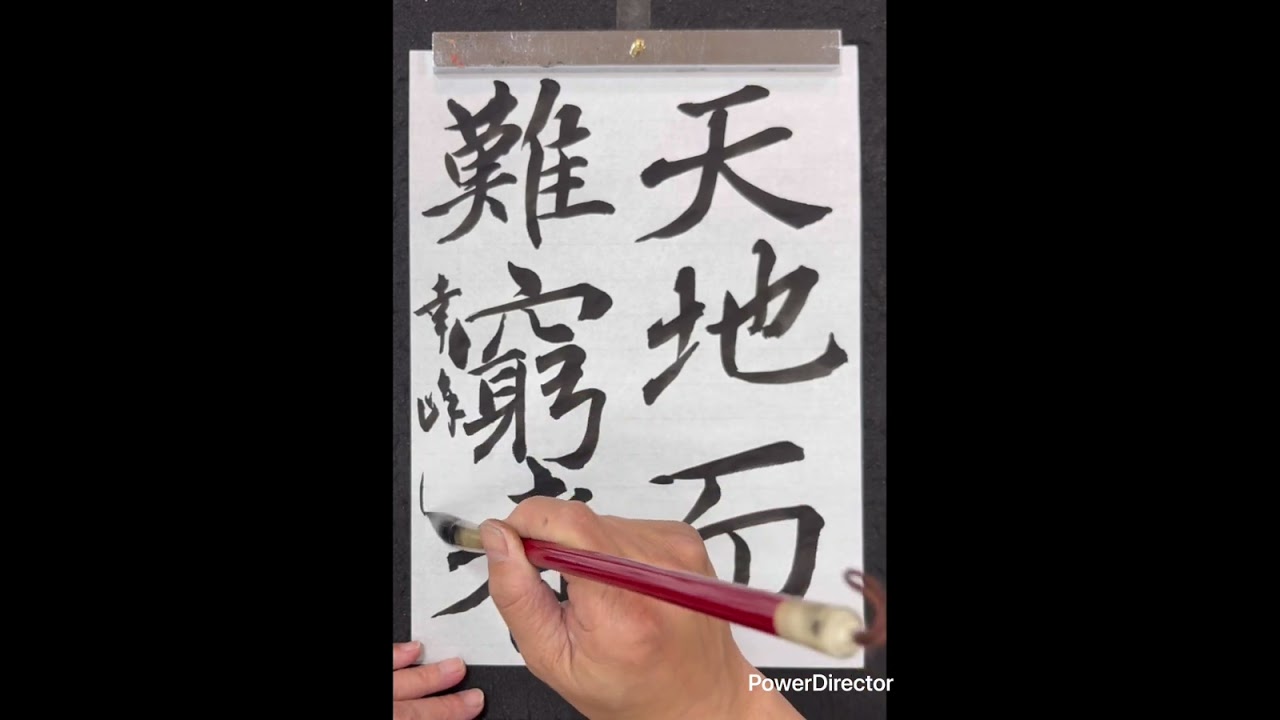 天地而
難窮者
幸峰
PowerDirector